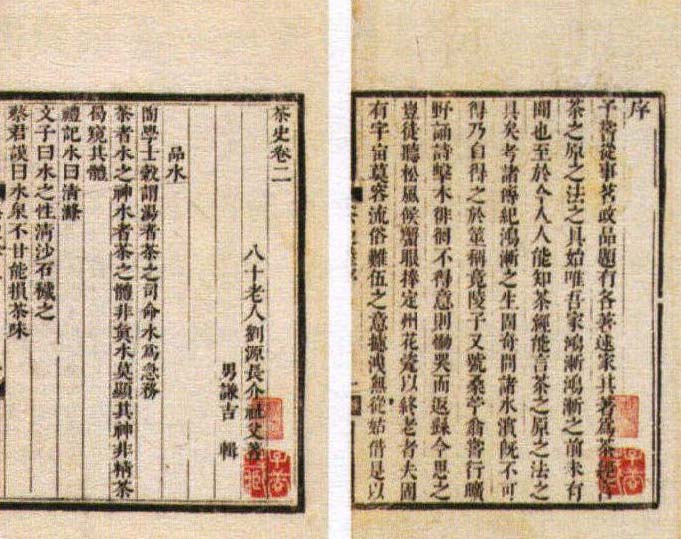 序
予嘗從事茗政品題有各著述家其著為茶
茶之原之法之具始唯吾家鴻漸鴻漸之前未有
聞也至於今人人能知茶經能言茶之原之法之
具矣考諸傳紀鴻漸之生固奇問諸水濱既不可
得乃自得之於筮稱竟陵子又號桑苧翁嘗行曠
野誦詩擊木徘徊不得意則慟哭而返 今思之
豈徒聽松風候蟹眼捧定州花瓷以終老者夫固
有宇宙莫容流俗難伍之意攄洩無從姑借是以
茶史卷二
八十老人劉源長介祉父著
男謙吉 輯
品水
陶學士穀謂湯者茶之司命水為急務
茶者水之神水者茶之體非眞水莫顯其神非精茶
曷窺其體
禮記水曰清滌
文子曰水之性清沙石穢之
蔡君謨曰水泉不甘能損茶味